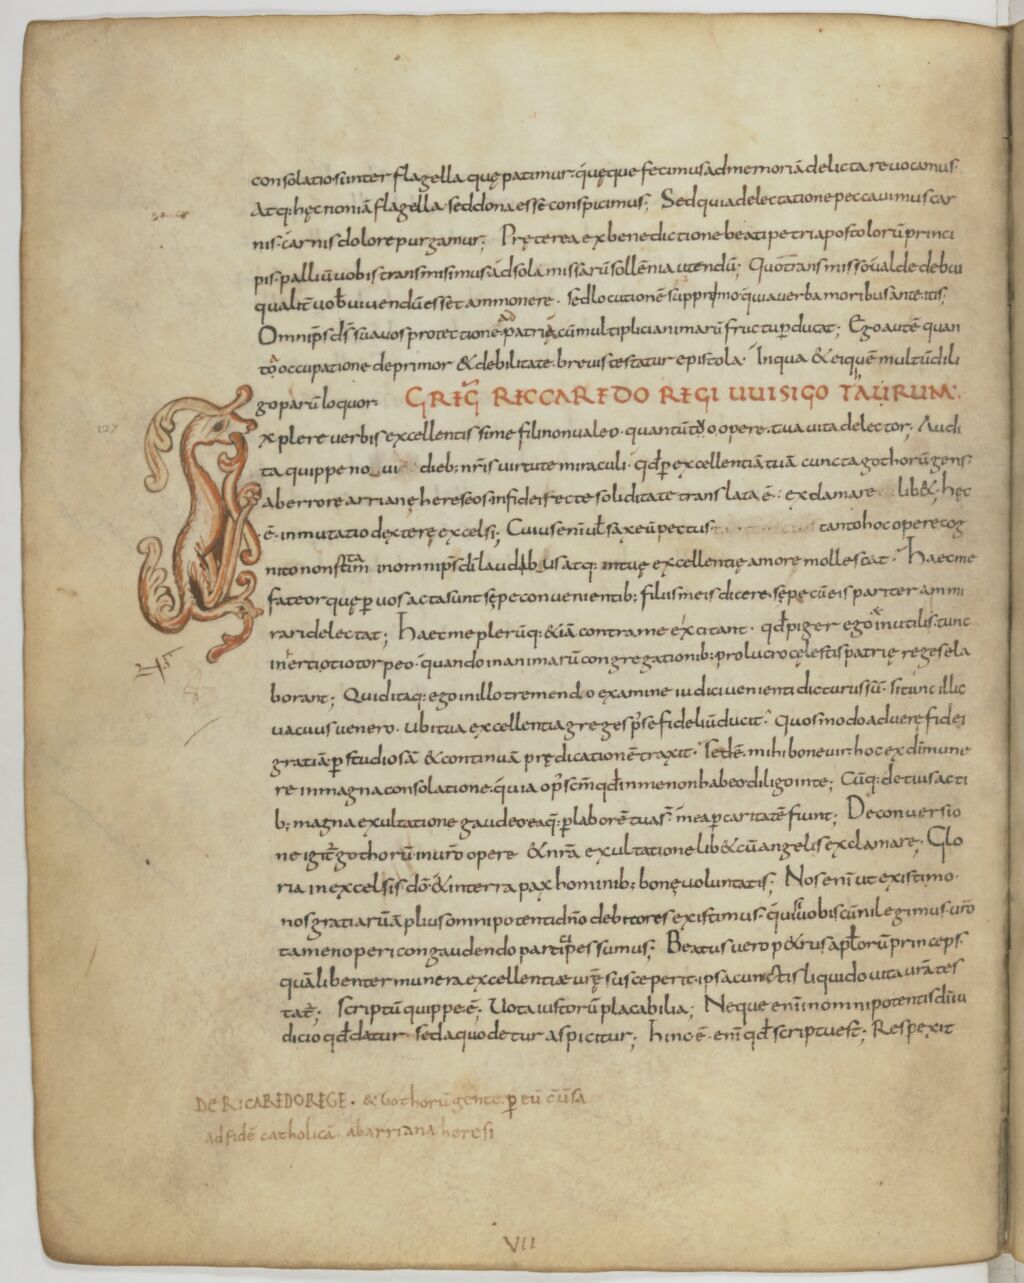 consolatio si inter flagella quę patimur· quęque fecimus ad memoriā delicta revocamus·
Atq: hęc non iā flagella sed dona esse conspicimus; Sed quia delectatione peccavimus car
nis· carnis dolore purgamur; Pręterea ex benedictione beati petri apostolorū princi
pis· palliū vobis transmisimus· ad sola missarū sollēnia utendū; Quo transmisso valde debui
qualit̄ vob̄ vivendū esset ammonere· sed locutionē supprimo· quia verba moribus ante itis;
Omnip̄s d̄s suavos protectione ad patriā cū multiplici animarū fructu perducat; Ego autē quan
ta occupatione deprimor & debilitate· brevis testatur epistola· In qua & ei quē multū dili
go parū loquor· GREḠ RICCAREDO REGI UUISIGOTAURUM·
Explere verbis excellentissime fili non valeo· quantū tuo opere· tua vita delector; Audi
ta quippe novi dieb; nr̄is virtute miraculi· qd̄ per excellentiā tuā cuncta gothorū gens·
ab errore arrianę hereseos in fidei recte soliditate translata ē· exclamare lib&· hęc
ē· inmutatio dexterę excelsi; Cuius enī vl̄ saxeū pectus· tanto hoc opere cog
nito non statim in omnip̄s dī laudib us atq: in tuę excellentię amore mollescat· Haec me
fateor quę per vos acta sunt sępe convenientib; filiis meis dicere· sępe cū eis pariter ammi
rari delectat; Haec me plerūq: & iā contra me excitant· qd̄ piger ego & inutilis· tunc
inerti otio torpeo· quando in animarū congregationib; pro lucro cęlestis patrię reges ela
borant; Quid itaq: ego in illo tremendo examine iudici venienti dicturus sū· si tunc illic
vacuus venero· ubi tua excellentia greges p̄ se fideliū ducit· Quos modo ad verę fidei
gratiā per studiosā & continuā prędicationē traxit· Sed ē· mihi bone vir· hoc ex dī mune
re in magna consolatione· quia op̄ sc̄m qd̄ in me non habeo diligo in te; Cūq: de tuis acti
b; magna exultatione gaudeo· eaq: per laborē tua s̄ mea per caritatē fiunt; De conversio
ne igit̄ gothorū in ur̄o opere & nr̄a exultatione lib& cū angelis exclamare· Glo
ria in excelsis dō· & in terra pax hominib; bonę voluntatis; Nos enī ut existimo·
nos gratiarū āplius omnipotenti dn̄o debitores existimus· qui vobiscū nil egimus· ur̄o
tamen operi congaudendo participes sumus; Beatus vero p&rus apl̄orū princeps·
quā libenter munera excellentiæ ur̄ę susceperit· ipsa cunctis liquido vita ur̄a tes
tat̄; Scriptū quippe ē; Vota iustorū placabilia; Neque enī in omnipotentis dī iu
dicio qd̄ datur· sed a quo detur aspicitur; Hinc ē· enī qd̄ scriptu est; Respexit
DE RICAREDO REGE· & Gothorū gente· per eū c̄ūsa
ad fidē catholicā· ab arriana heresi
VII